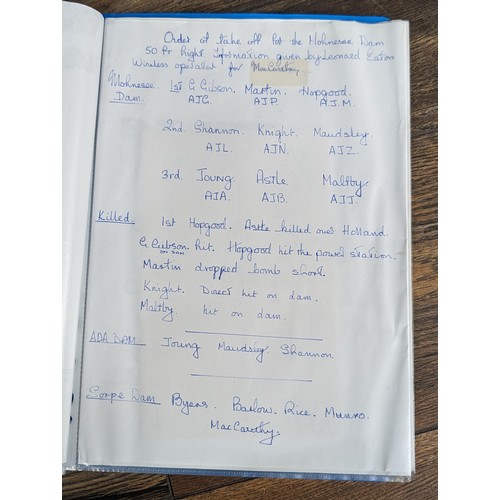 Order of take off for the Mohnesee Dam
50 Pr Right Information given by Leonard Eaton
Wireless operator for MacCarthy
Mohnesee 1st G Gibson. Martin. Hopgood.
Dam. AJG. AJP. A.J.M.
2nd. Shannon. Knight. Maudsley.
AJL. AJN. AJZ.
3rd. Joung. Astle Maltby.
AJA. AJB. AJJ.
Killed. 1st Hopgood. Astle killed over Holland
G. Gibson. hit. Hopgood hit the power station.
on dam
Martin dropped bomb short.
Knight. Direct hit on dam.
Maltby. hit on dam.
ADA DAM Joung Maudsley. Shannon
Sorpe Dam Byers. Barlow. Rice. Munro.
MacCarthy.